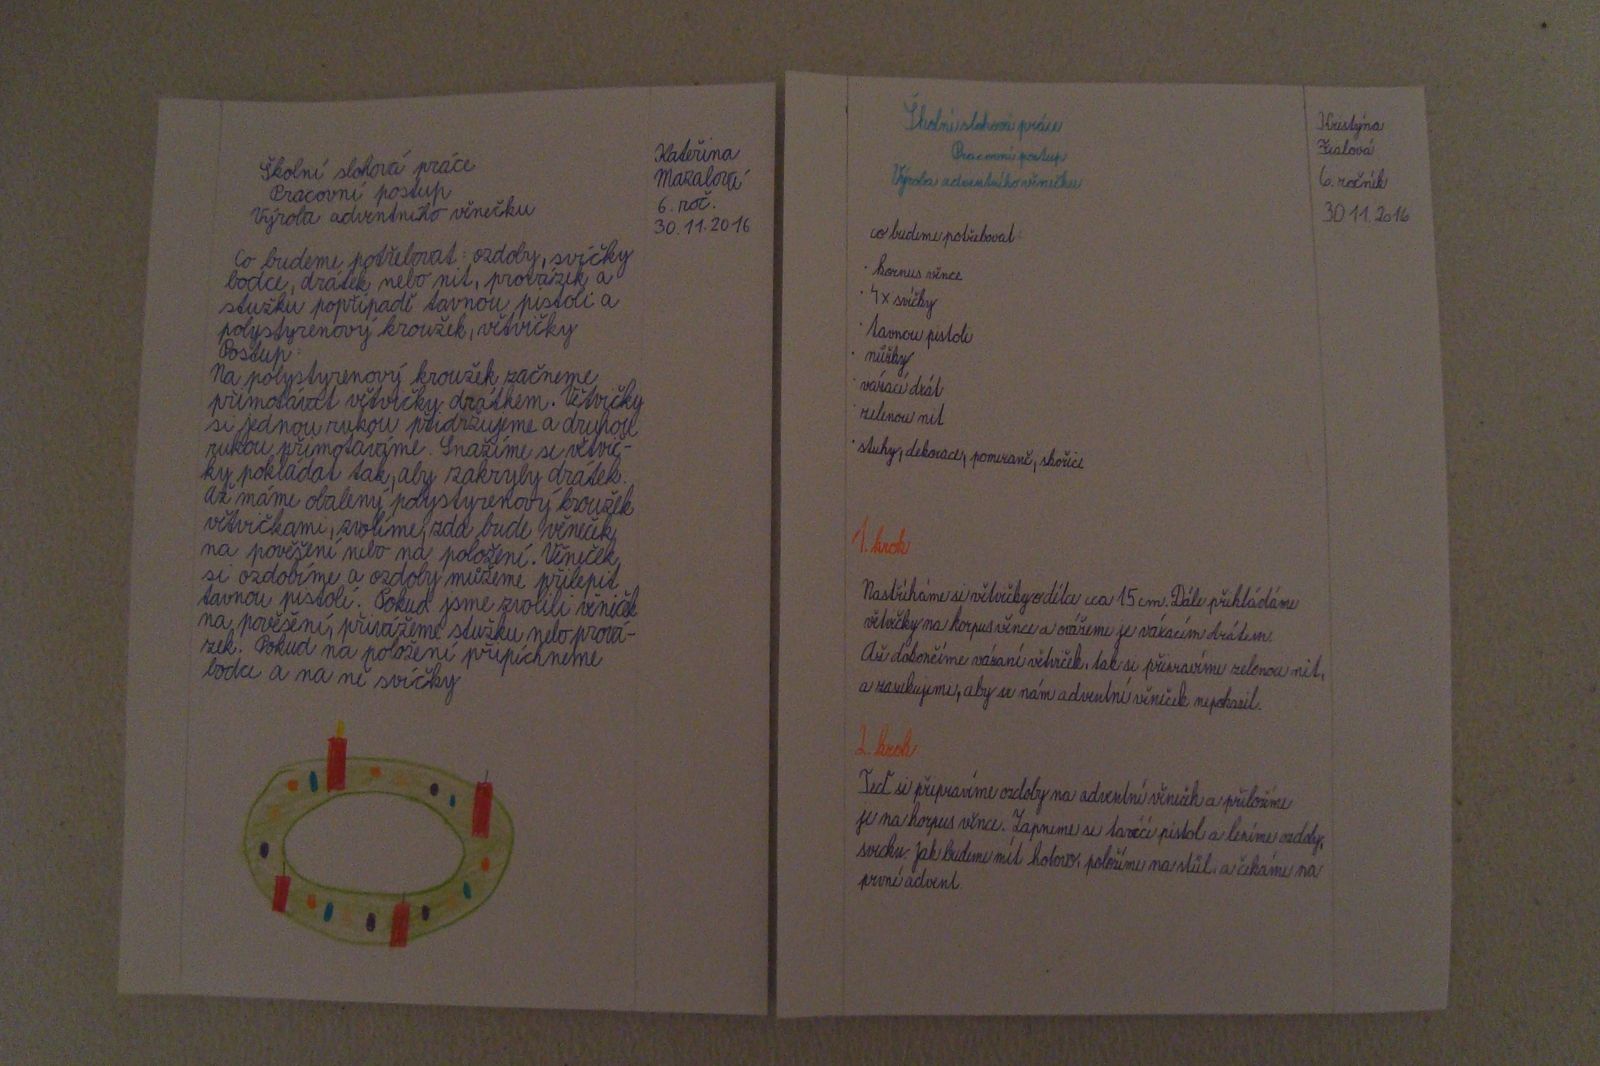 Školní slohová práce
Pracovní postup
Výroba adventního věnečku
Kateřina
Mazalová
6. roč.
30.11.2016
Co budeme potřebovat: ozdoby, svíčky
bodce, drátek nebo nit, provázek a
stužku popřípadě tavnou pistoli a
polystyrenový kroužek, větvičky
Postup:
Na polystyrenový kroužek začneme
přimotávat větvičky drátkem. Větvičky
si jednou rukou přidržujeme a druhou
rukou přimotáváme. Snažíme se větvič-
ky pokládat tak, aby zakryby drátek.
Až máme obalený polystyrenový kroužek
větvičkami, zvolíme, zda bude věneček
na pověšení nebo na položení. Věneček
si ozdobíme a ozdoby můžeme přilepit
tavnou pistolí. Pokud jsme zvolili věneček
na pověšení, přivážeme stužku nebo prová-
zek. Pokud na položení připíchneme
bodce a na ně svíčky
Školní slohová práce
Pracovní postup
Výroba adventního věnečku
Kristýna
6. ročník
30.11.2016
co budeme potřebovat:
· korpus věnce
· 4x svíčky
· tavnou pistoli
· nůžky
· vázací drát
· zelenou nit
· stuhy, dekorace, pomeranč, skořice
1. krok
Nastříháme si větvičky o délce cca 15 cm. Dále přikládáme
větvičky na korpus věnce a ovážeme je vázacím drátem.
Až dokončíme vázaní větviček, tak si připravíme zelenou nit,
a zasukujeme, aby se nám adventní věneček nepokazil.
2. krok
Teď si připravíme ozdoby na adventní věneček a přiložíme
je na korpus věnce. Zapneme si tavící pistol a lepíme ozdoby,
svicku. Jak budeme mít hotovo, položíme na stůl, a čekáme na
první advent.